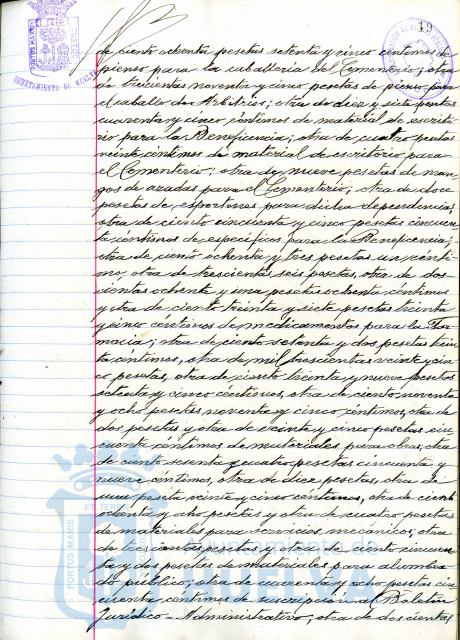 19
PORTUS MARIS
ET TERRÆ
AYUNTAMIENTO DE HUELVA
de ciento ochenta pesetas setenta y cinco centimos de
pienso para la caballería del Cementerio; otra
de trescientas noventa y cinco pesetas de pienso para
el caballo de Arbitrios; otra de diez y siete pesetas
cuarenta y cinco céntimos de material de escrito-
rio para la Beneficencia; otra de cuatro pesetas
veinte céntimos de material de escritorio para
el Cementerio; otra de nueve pesetas de man-
gos de azadas para el Cementerio; otra de doce
pesetas de esportones para dicha dependencia;
otra de ciento cincuenta y cinco pesetas cincuen-
ta céntimos de específicos para la Beneficencia;
otra de ciento ochenta y tres pesetas un cénti-
mo, otra de trescientas seis pesetas, otra de dos-
cientas ochenta y una pesetas ochenta céntimos
y otra de ciento treinta y siete pesetas treinta
y cinco céntimos de medicamentos para la Far-
macia; otra de ciento setenta y dos pesetas trein-
ta céntimos, otra de mil trescientas veinte y cin-
co pesetas, otra de ciento treinta y nueve pesetas
setenta y cinco centimos, otra de ciento noventa
y ocho pesetas noventa y cinco céntimos, otra de
dos pesetas y otra de veinte y cinco pesetas cin-
cuenta céntimos de materiales para obras; otra
de ciento sesenta y cuatro pesetas cincuenta y
nueve céntimos, otra de diez pesetas, otra de
una peseta veinte y cinco centimos, otra de ciento
ochenta y ocho pesetas y otra de cuatro pesetas
de materiales para servicios mecánicos; otra
de trescientas pesetas y otra de ciento cincuen-
ta y dos pesetas de materiales para alumbra-
do público; otra de cuarenta y ocho pesetas cin-
cuenta centimos de suscripción al Boletín
Jurídico-Administrativo, otra de doscientas
PORTUS MARIS
ET TERRÆ
Ayuntamiento de
HUELVA